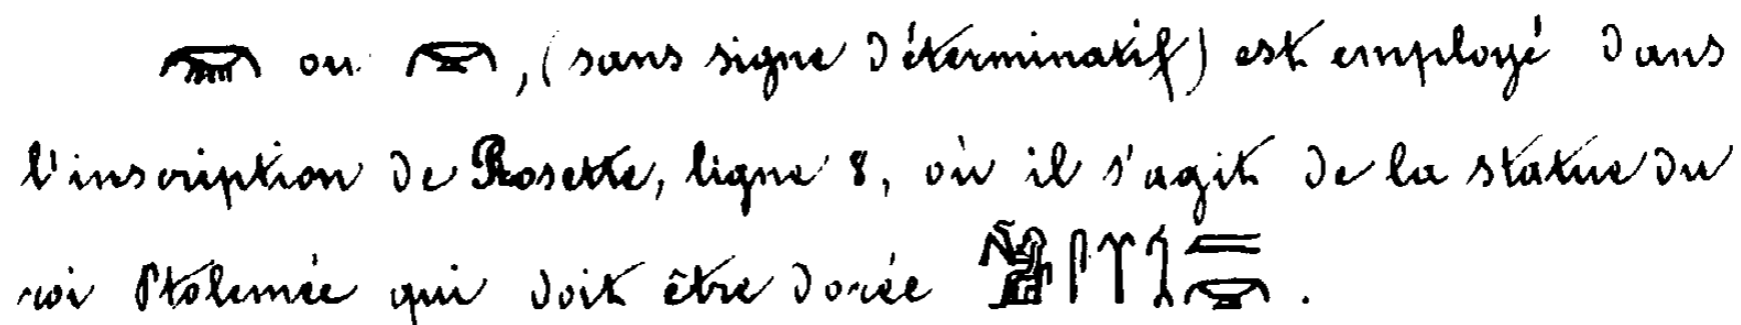 ou , (sans signe déterminatif) est employé dans
l'inscription de Rosette, ligne 8, où il s'agit de la statue du
roi Ptolémée qui doit être dorée .